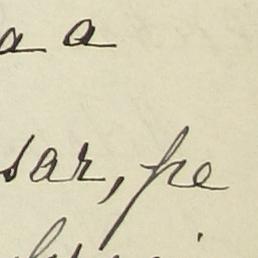 a a
sar, pe